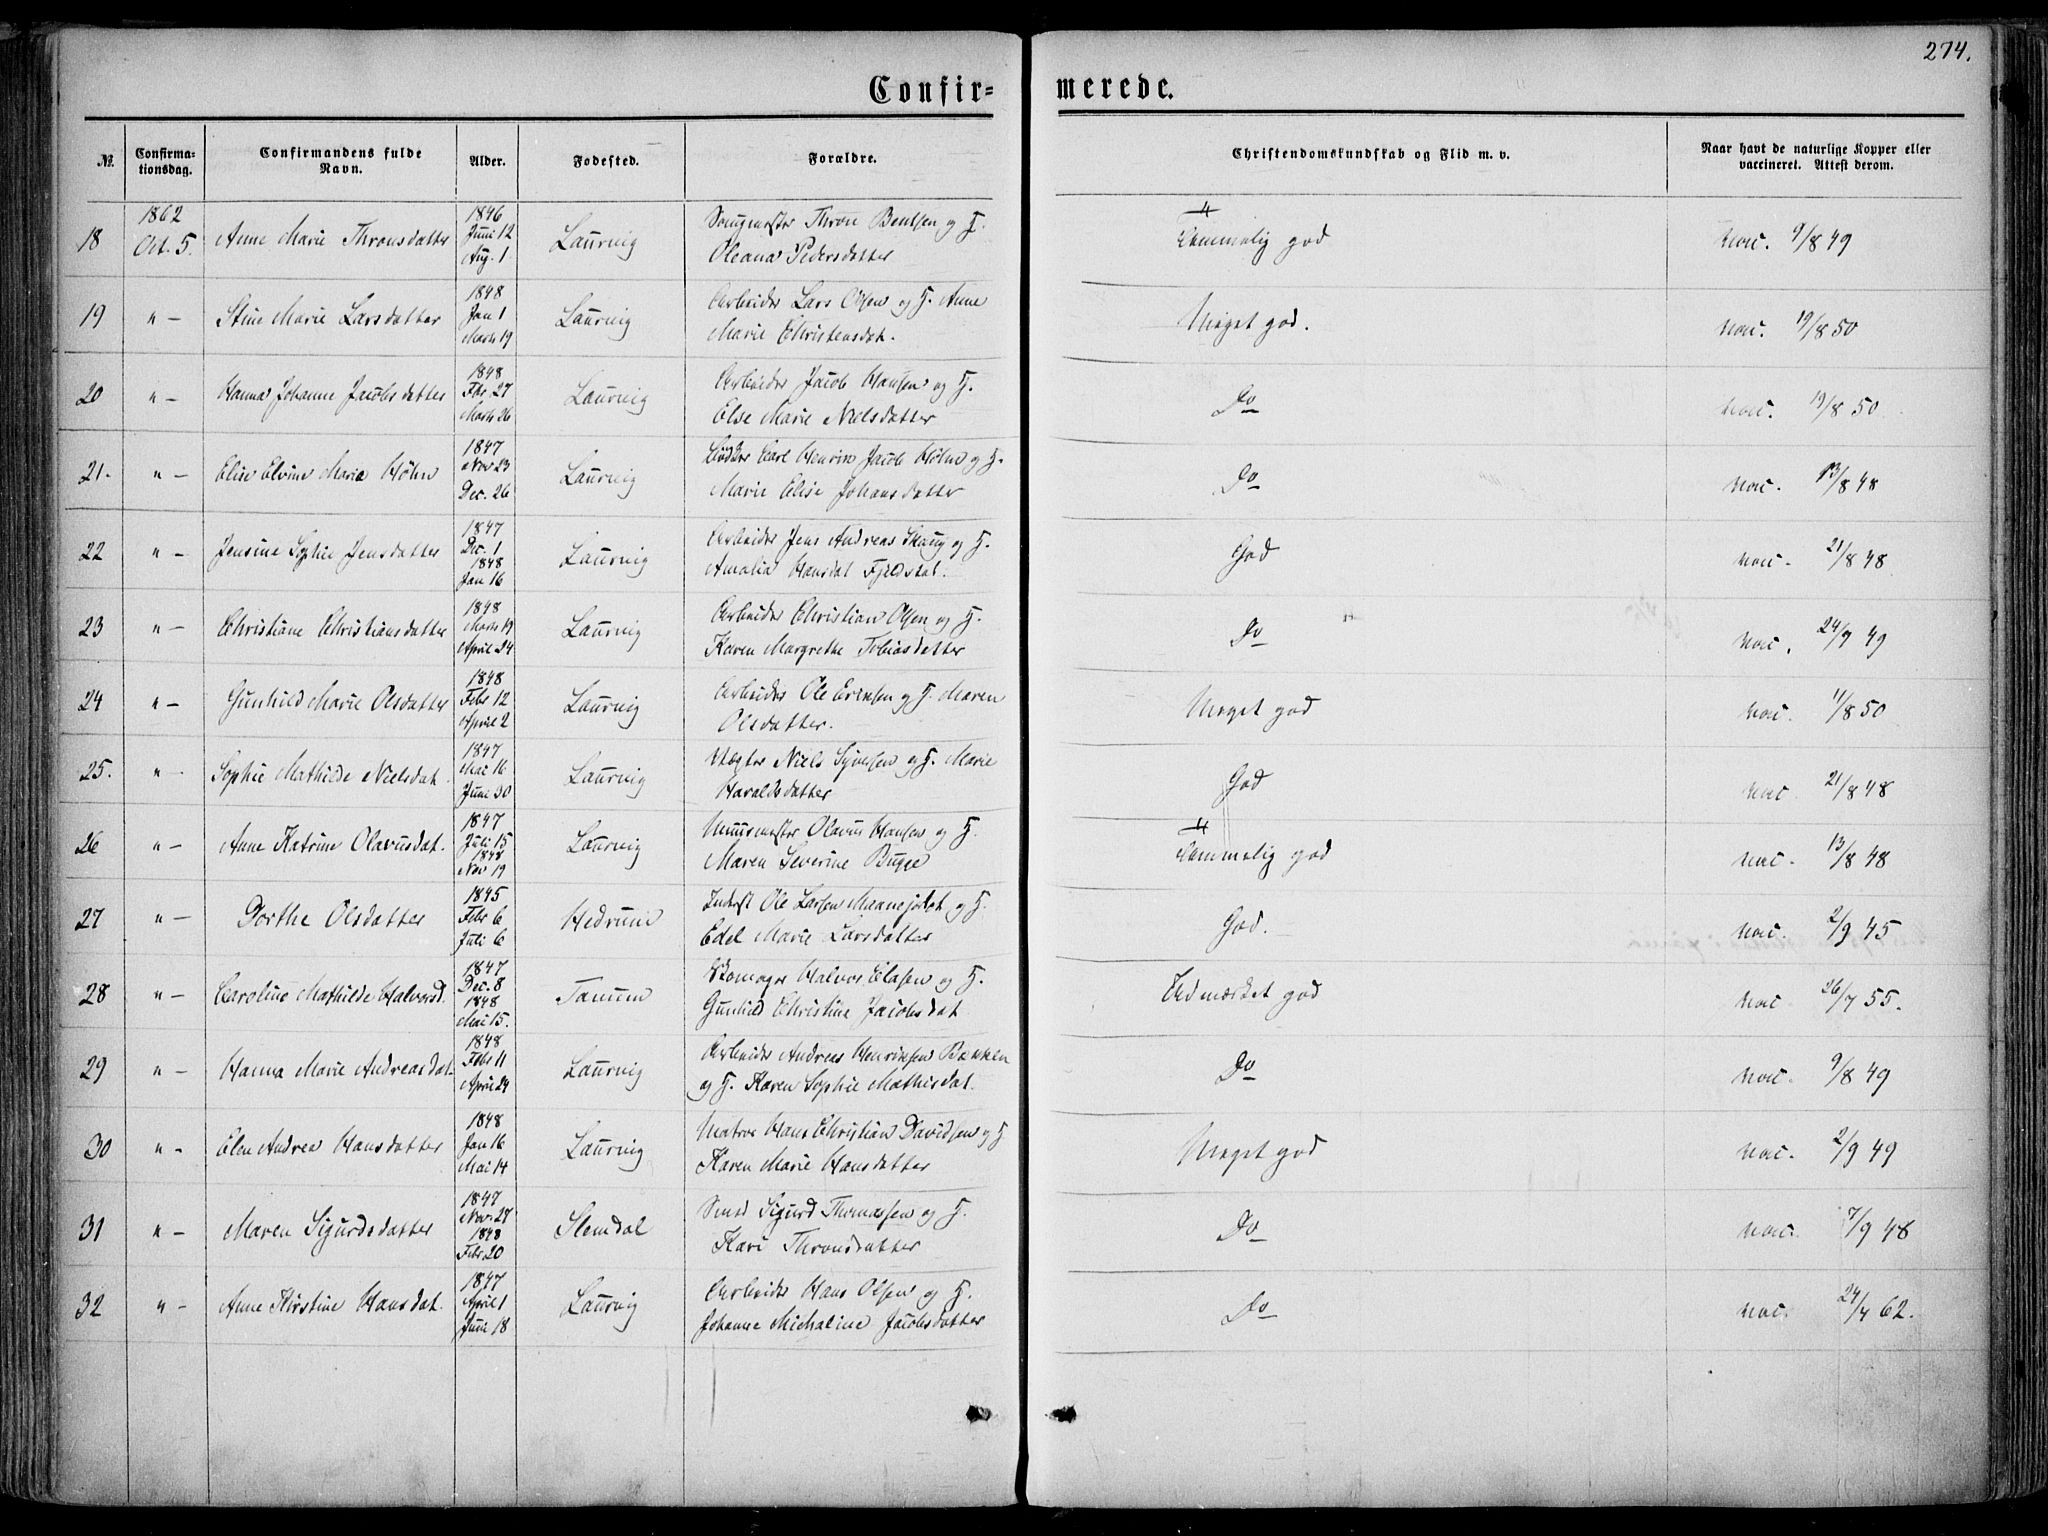 274.
Confir-
merede.
No.
Confirma-
tionsdag.
Confirmandens fulde
Navn.
Alder.
Fødested.
Forældre.
Christendomskundskab og Flid m. v.
Naar havt de naturlige Kopper eller
vaccineret. Attest derom.
18
1862
Oct. 5.
Anne Marie Thronsdatter
1846
Juni 12
Aug. 1
Laurvig
Throne Bentsen og H.
Oleana Pedersdatter
Temmelig god
vac. 9/8 49
19
" -
Stine Marie Larsdatter
1848
Jan 1
Marts 19
Laurvig
Arbeider Lars Olsen og H. Anne
Marie Christensdat.
Meget god.
vac. 19/8 50
20
" -
Hanna Johanne Jacobsdatter
1848
Fbr 27
Marts 26
Laurvig
Arbeider Jacob Hansen og H.
Else Marie Nielsdatter
Do
vac. 19/8 50
21.
" -
Elise Elvine Marie Høhn
1847
Nov 23
Dec. 26
Laurvig
Carl Henrik Jacob Høhn og H.
Marie Elise Johansdatter
Do
vac. 13/8 48
22
" -
Jensine Sophie Jensdatter
1847
Dec. 1
1848
Jan 16
Laurvig
Arbeider Jens Andreas Skaug og H.
Amalia Hansdat Fjeldstat.
God
vac. 21/8 48
23
" -
Christiane Christiansdatter
1848
Marts 19
April 24
Laurvig
Arbeider Christian Olsen og H.
Karen Margrethe Tobiasdatter
Do
vac. 24/9 49
24
" -
Gunhild Marie Olsdatter
1848
Febr 12
April 2
Laurvig
Arbeider Ole Eriksen og H. Maren
Olsdatter.
Meget god
vac. 11/8 50
25.
" -
Sophie Mathilde Nielsdat.
1847
Mai 16
Juni 30
Laurvig
Vægter Niels Syversen og H. Marie
Haraldsdatter
God
vac. 21/8 48
26
" -
Anne Katrine Olavusdat.
1847
Juli 15
1848
Nov 19
Laurvig
Muurmester Olavus Hansen og H.
Maren Severine Bugge
Temmelig god
vac. 13/8 48
27
" -
Dorthe Olsdatter
1845
Febr 6
Juli 6
Hedrum
Inderst Ole Larsen og H.
Edel Marie Larsdatter
God.
vac. 2/9 45
28
" -
Caroline Mathilde Halvorsd.
1847
Dec. 8
1848
Mai 15.
Tanum
Skomager Halvor Olasen og H.
Gunhild Christine Jacobsdat
Udmærket god
vac. 26/7 55.
29
" -
Hanna Marie Andreasdat.
1848
Febr 11
April 24
Laurvig
Arbeider Andreas Henriksen Bakken
og H. Karen Sophie Mathisdat.
Do
vac. 9/8 49
30
" -
Elen Andrea Hansdatter
1848
Jan 16
Mai 14
Laurvig
Matros Hans Christian Davidsen og H
Karen Marie Hansdatter
Meget god
vac. 2/9 49
31
" -
Maren Sigurdsdatter
1847
Nov. 27
1848
Febr. 20
Slemdal
Smed Sigurd Thomassen og H.
Kari Thronsdatter
Do
vac. 7/9 48
32
" -
Anne Kirstine Hansdat.
1847
April 1
Juni 18
Laurvig
Arbeider Hans Olsen og H.
Johanne Michaline Jacobsdatter
Do
vac. 24/7 62.